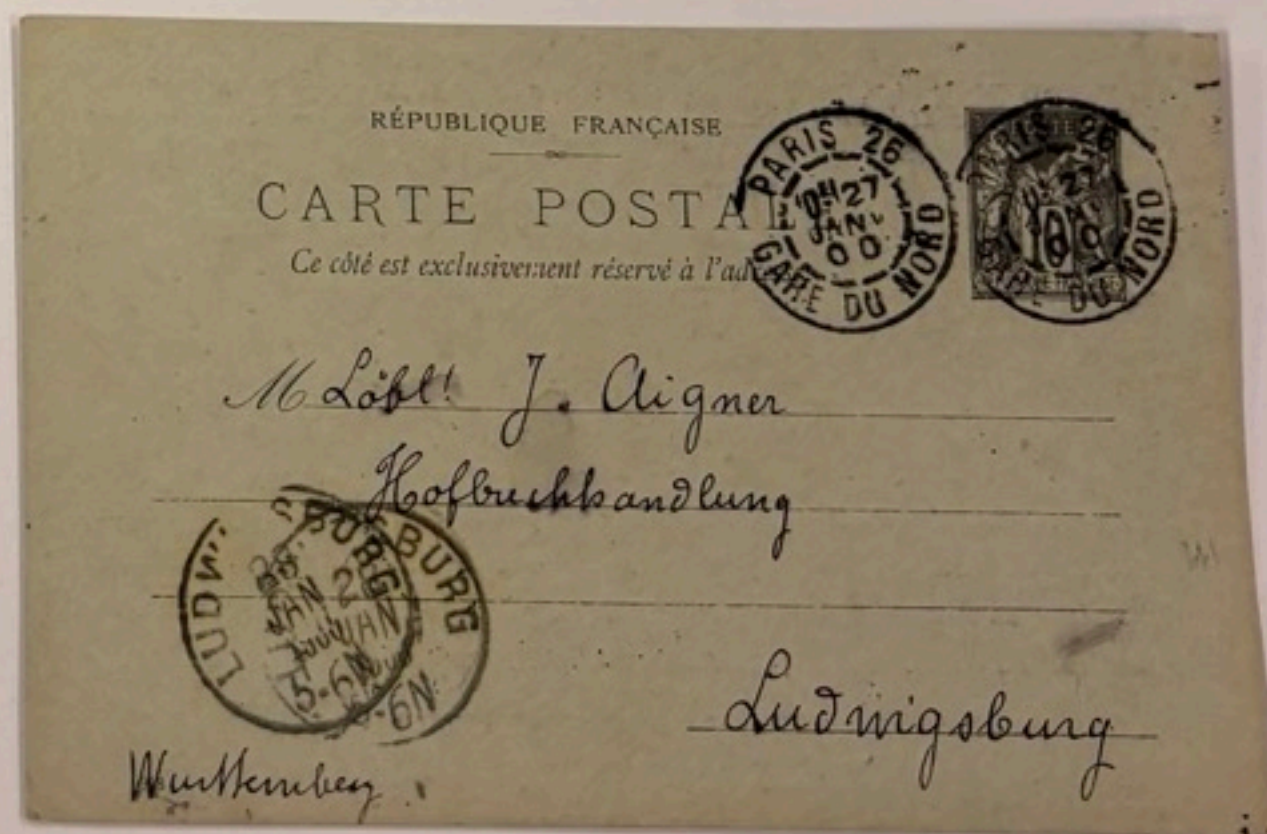 RÉPUBLIQUE FRANÇAISE
CARTE POSTAL
Ce côté est exclusivement réservé à l'ad
PARIS 26
27
JANV
00
GARE DU NORD
PARIS 26
27
10
GARE DU NORD
M Löbl! J. Aigner
Hofbuchhandlung
LUDW SBURG
JAN
5-6N
BURG
JAN
5-6N
Ludwigsburg
Württemberg